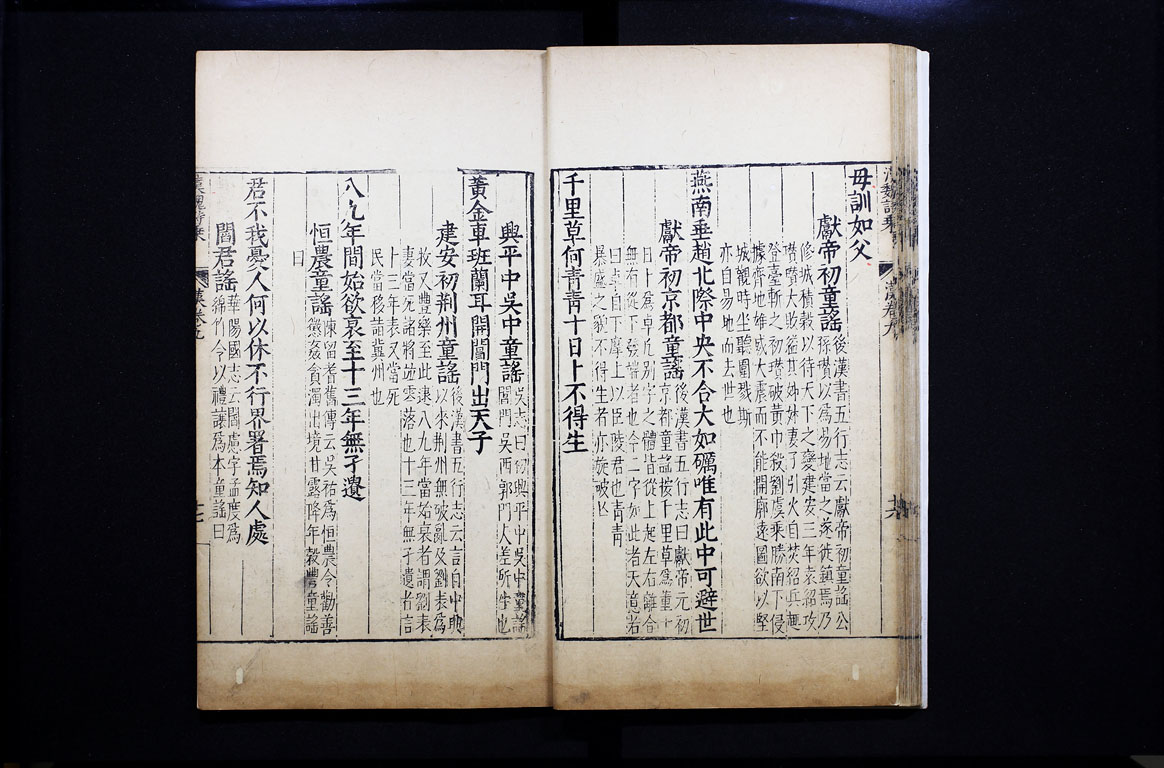 漢魏詩乘
漢卷九
母訓如父
獻帝初童謠
後漢書五行志云獻帝初童謠公
孫瓚以為易地當之遂徙鎮焉乃
修城積穀以待天下之變建安三年袁紹攻
瓚瓚大敗縊其姊妹妻子引火自焚紹兵趣
登臺斬之初瓚破黃巾殺劉虞乘勝南下侵
據齊地雄威大震而不能開廓遠圖欲以堅
城觀時坐聽圍戮斯
亦自易地而去世也
燕南垂趙北際中央不合大如礪唯有此中可避世
獻帝初京都童謠
後漢書五行志曰獻帝元初
京都童謠按千里草為董十
日卜為卓凡別字之體皆從上起左右離合
無有從下發端者也今二字如此者天意若
曰卓自下摩上以臣陵君也青青
暴盛之貌不得生者亦旋破亡
千里草何青青十日卜不得生
興平中吳中童謠
吳志曰初興平中吳中童謠
閶門吳西郭門夫差所作也
黃金車班蘭耳開閶門出天子
建安初荊州童謠
後漢書五行志云言自中興
以來荊州無破亂及劉表為
牧又豐樂至此逮八九年當始衰者謂劉表
妻當死諸將並零落也十三年無孑遺者言
十三年表又當死
民當移詣冀州也
八九年間始欲衰至十三年無孑遺
恒農童謠
陳留耆舊傳云吳祐為恒農令勸善
懲姦貪濁出境甘露降年穀豐童謠
曰
君不我憂人何以休不行界署焉知人處
閻君謠
華陽國志云閻憲字孟度為
綿竹令以禮讓為本童謠曰